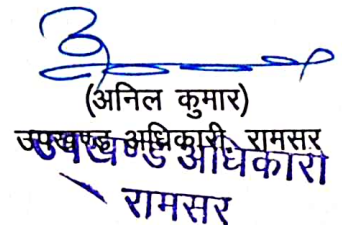 (अनिल कुमार)
उपखण्ड अधिकारी, रामसर
उपखण्ड अधिकारी
रामसर